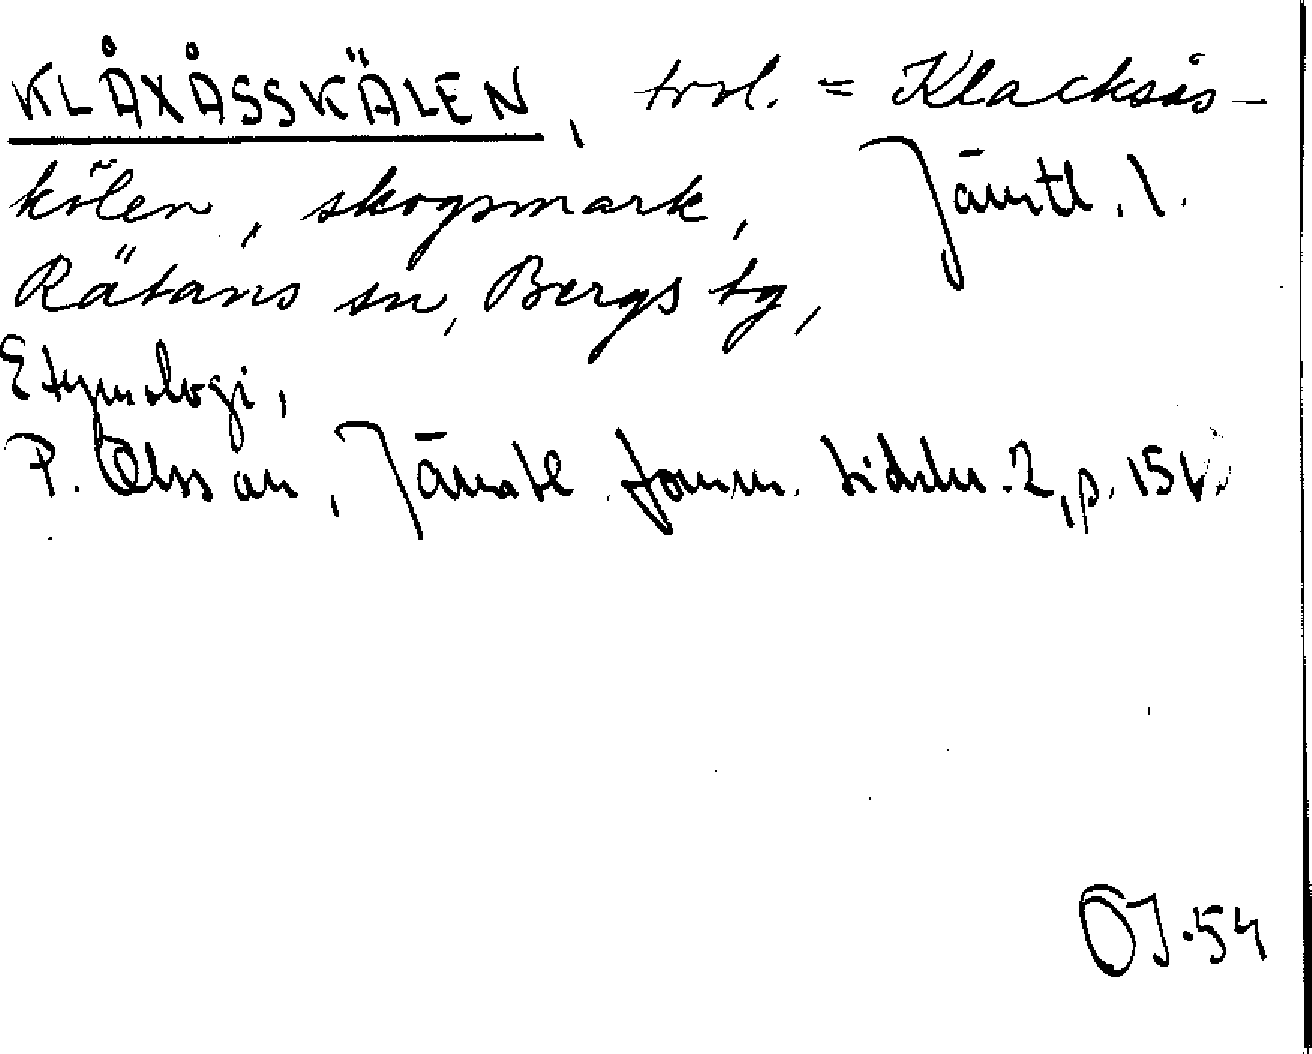 KLÅXÅSSKÄLEN, trol. = Klacksås-
kölen, skogsmark, Jämtl. l.
Rätans sn, Bergs tg,
Etymologi,
P. Olsson, Jämtl. fornm. tidskr. 2, p.
ÖJ. 54